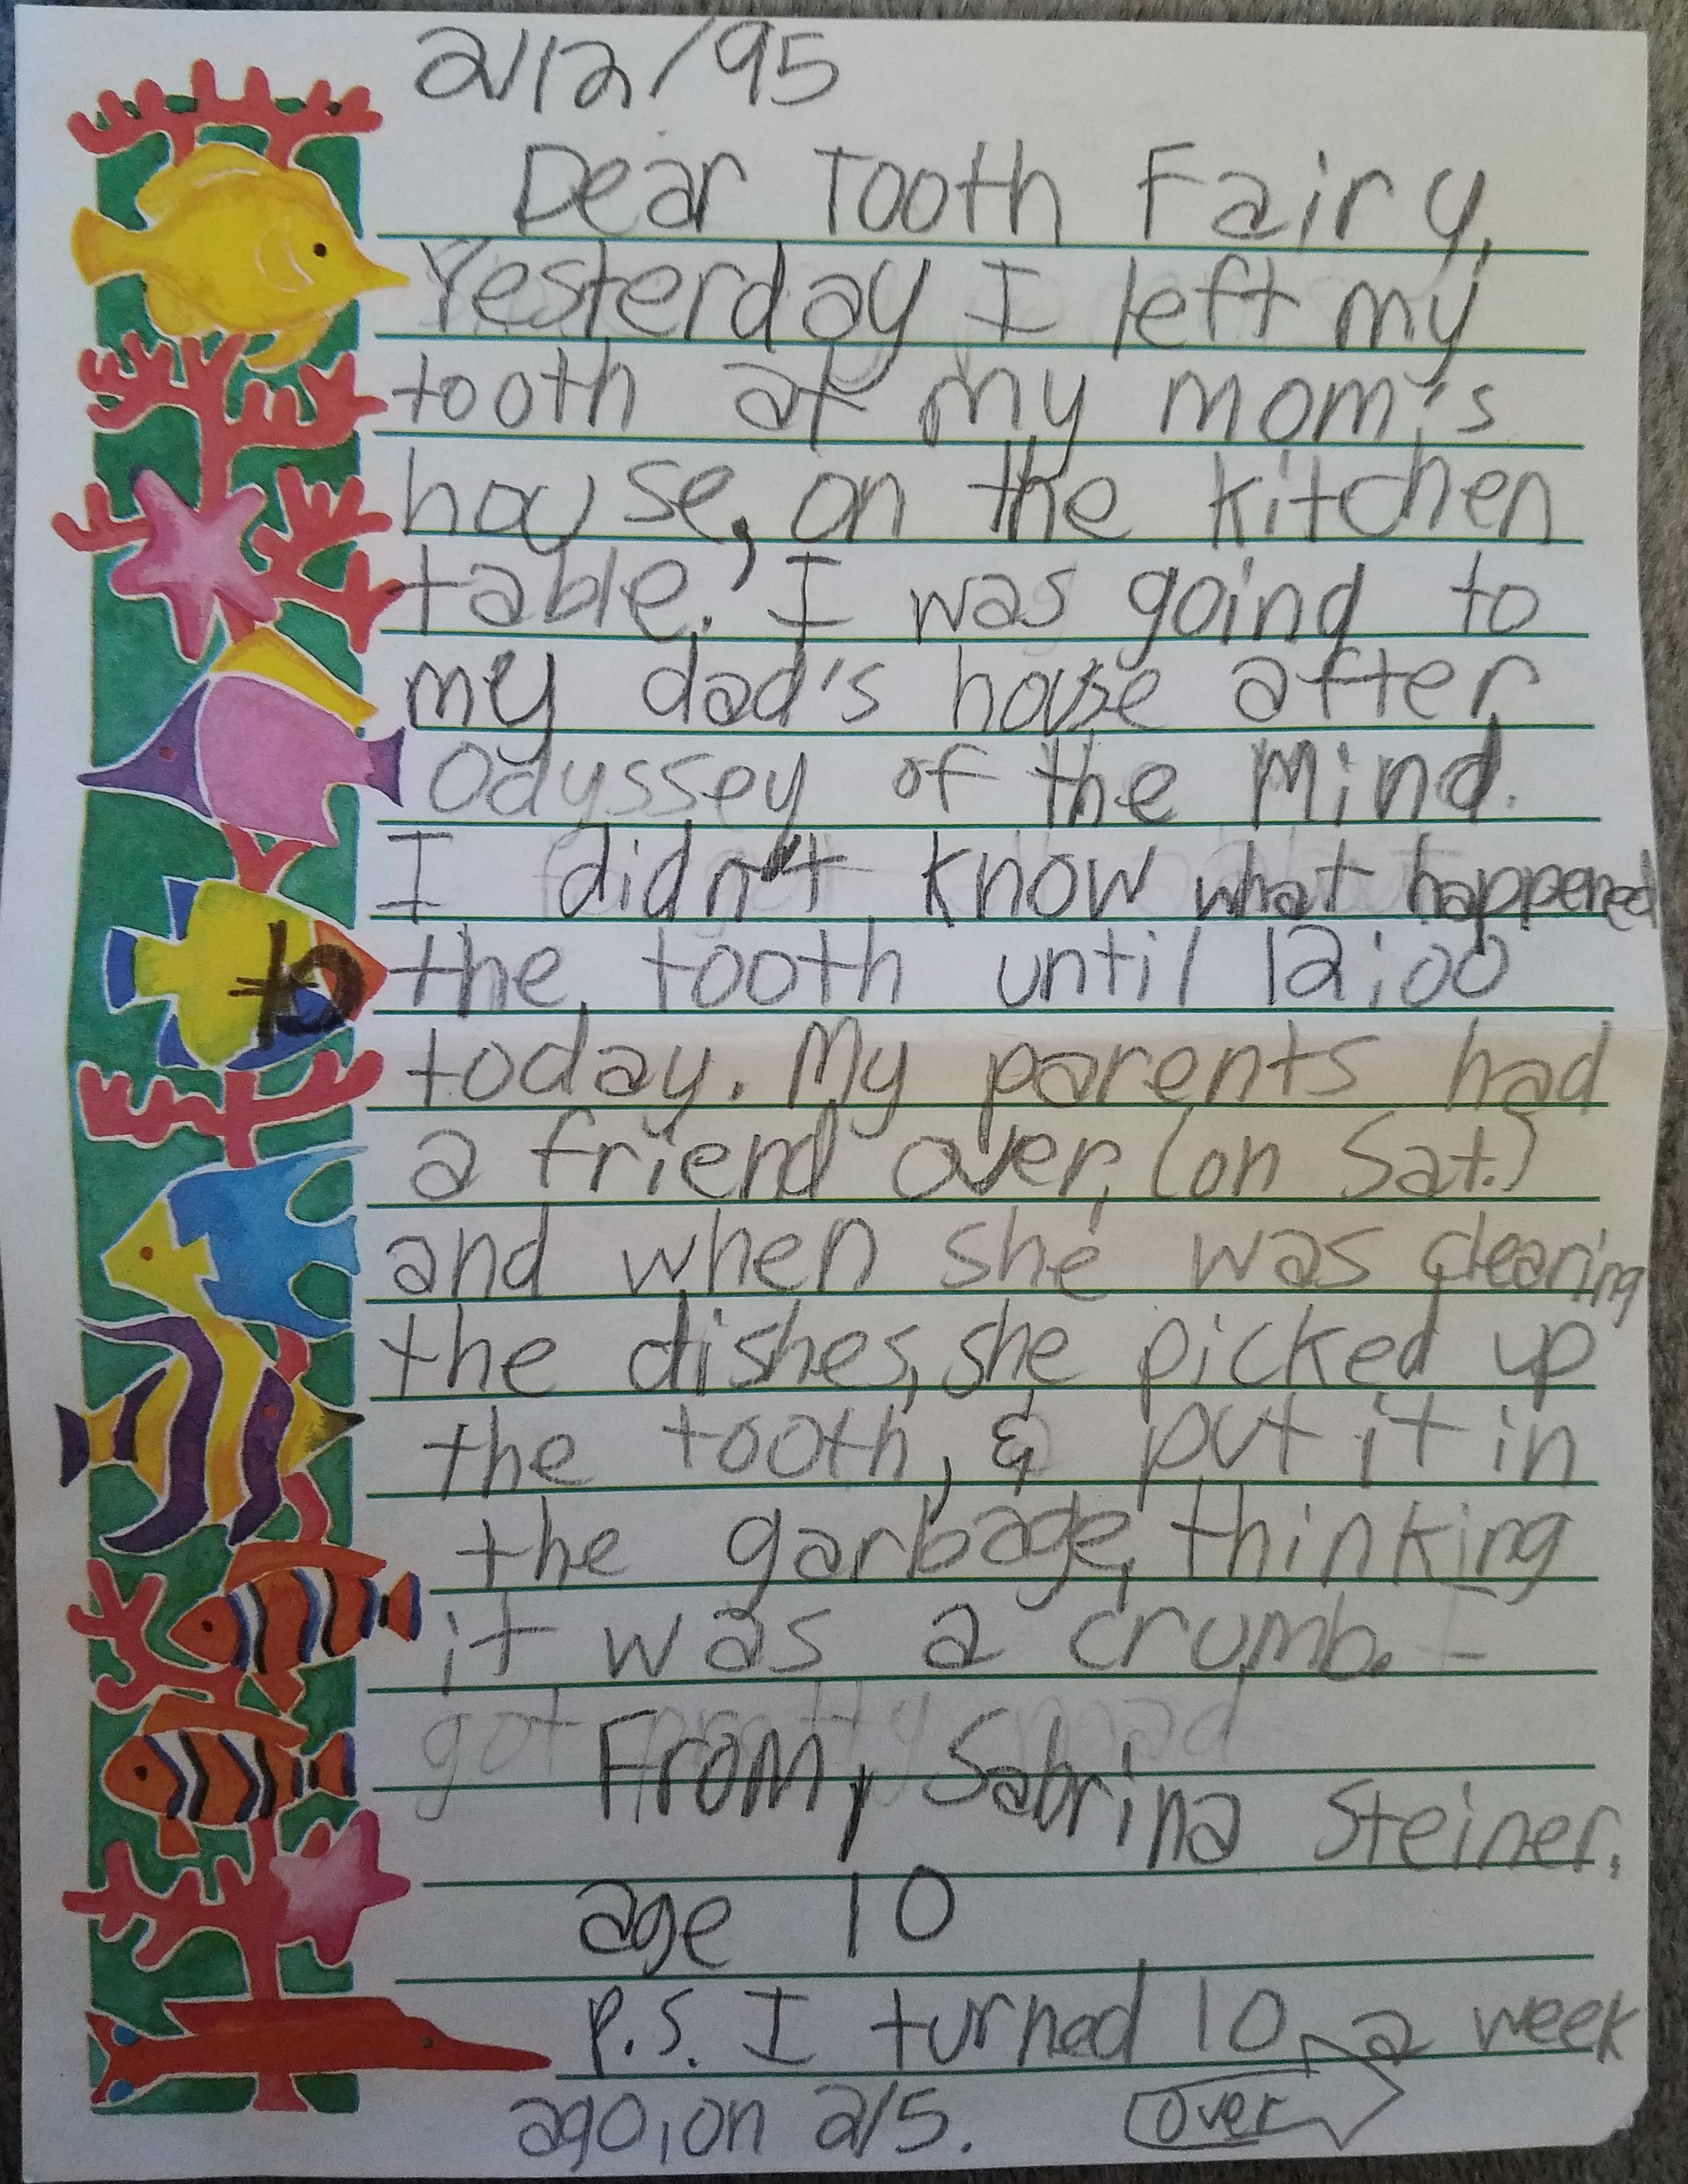 2/12/95
Dear Tooth Fairy,
Yesterday I left my
tooth at my mom's
house, on the kitchen
table. I was going to
my dad's house after
Odyssey of the Mind.
I didn't know what happened
the tooth until 12:00
today. My parents had
a friend over, (on Sat.)
and when she was clearing
the dishes, she picked up
the tooth, & put it in
the garbage, thinking
it was a crumb.
got pretty mad
From, Sabrina Steiner,
age 10
P.S. I turned 10, a week
ago, on 2/5. over